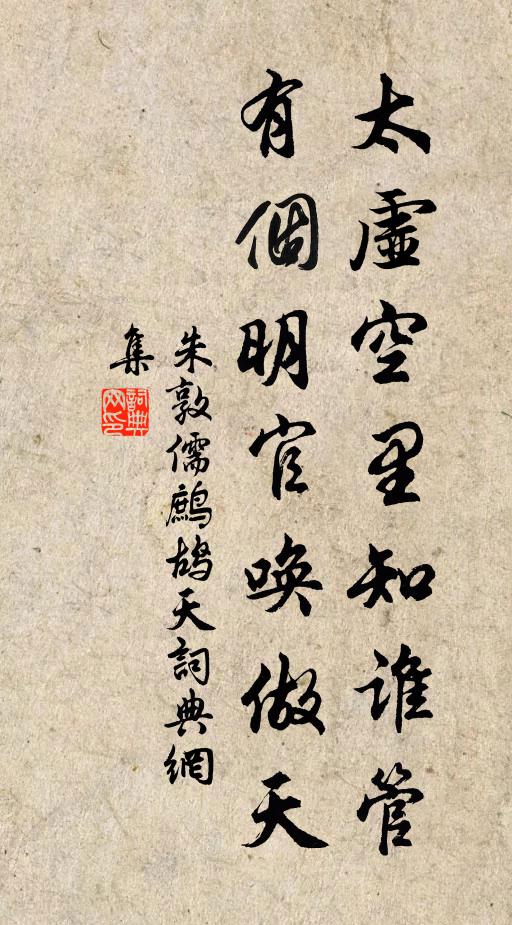 太虛空里知誰管
有個明官喚做天
朱敦儒鷓鴣天詞典網
集
詞典
网印